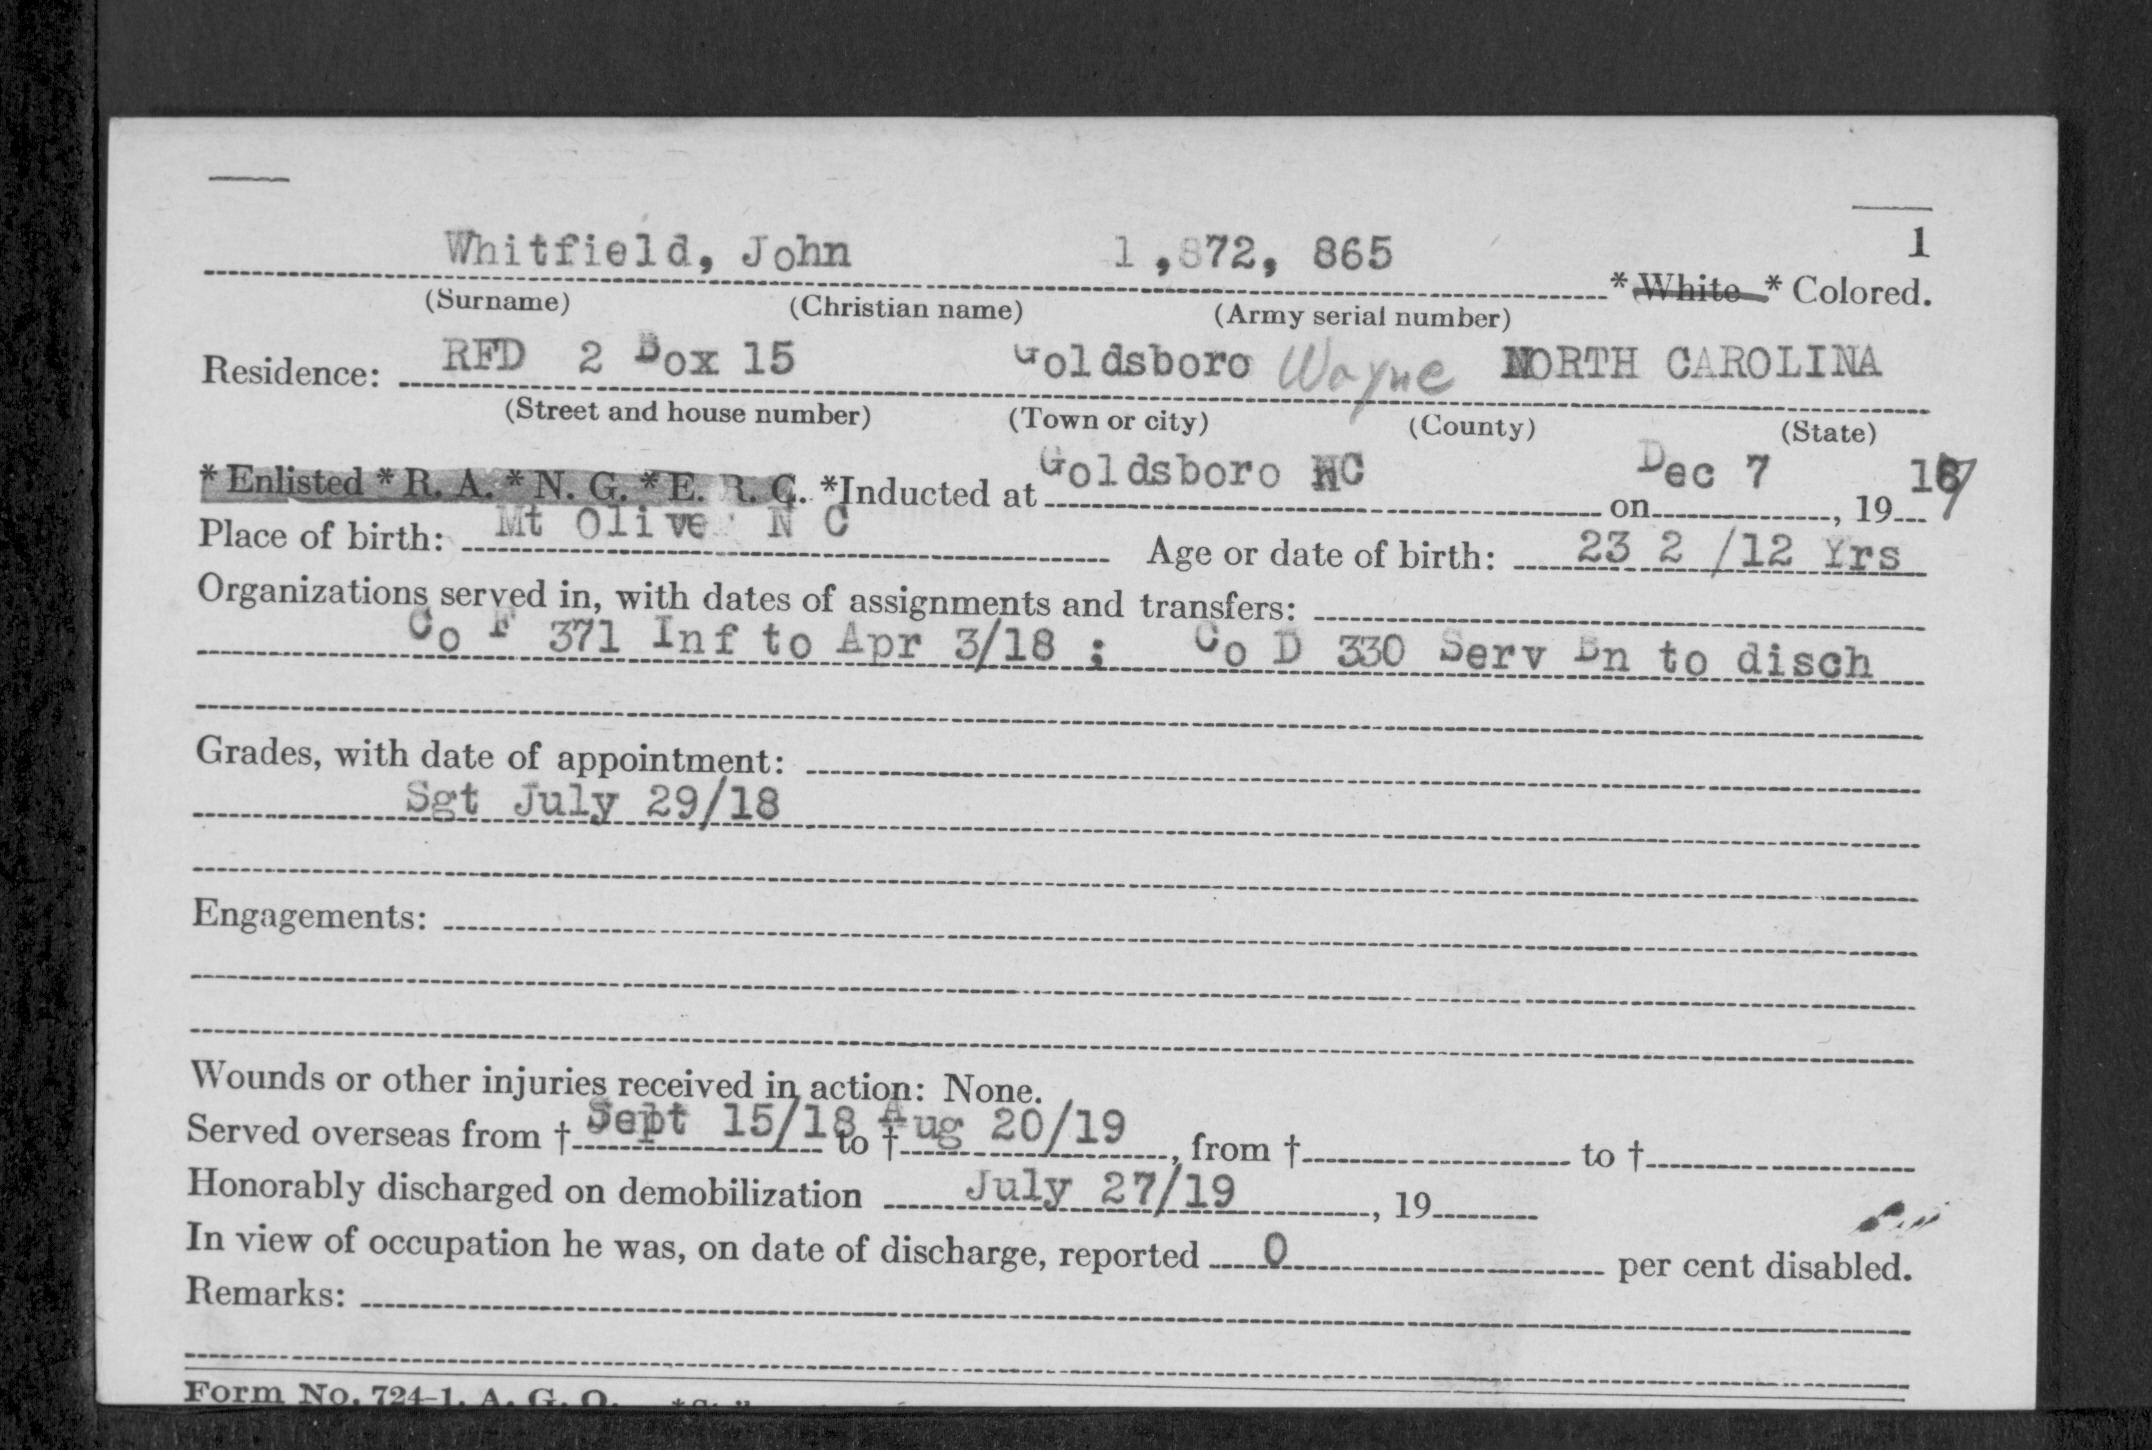 1
Whitfield, John 1,872, 865 * White * Colored.
(Surname) (Christian name) (Army serial number)
Residence: RFD 2 Box 15 Goldsboro Wayne NORTH CAROLINA
(Street and house number) (Town or city) (County) (State)
* Enlisted * R. A. * N. G. * E. R. C. *Inducted at Goldsboro NC on Dec 7, 19 17
Place of birth: Mt Olive N C Age or date of birth: 23 2 /12 Yrs
Organizations served in, with dates of assignments and transfers:
Co F 371 Inf to Apr 3/18 ; Co D 330 Serv Bn to disch
Grades, with date of appointment:
Sgt July 29/18
Engagements:
Wounds or other injuries received in action: None.
Served overseas from † Sept 15/18 to † Aug 20/19, from † to †
Honorably discharged on demobilization July 27/19, 19
In view of occupation he was, on date of discharge, reported 0 per cent disabled.
Remarks:
Form No. 724-1, A. G. O.